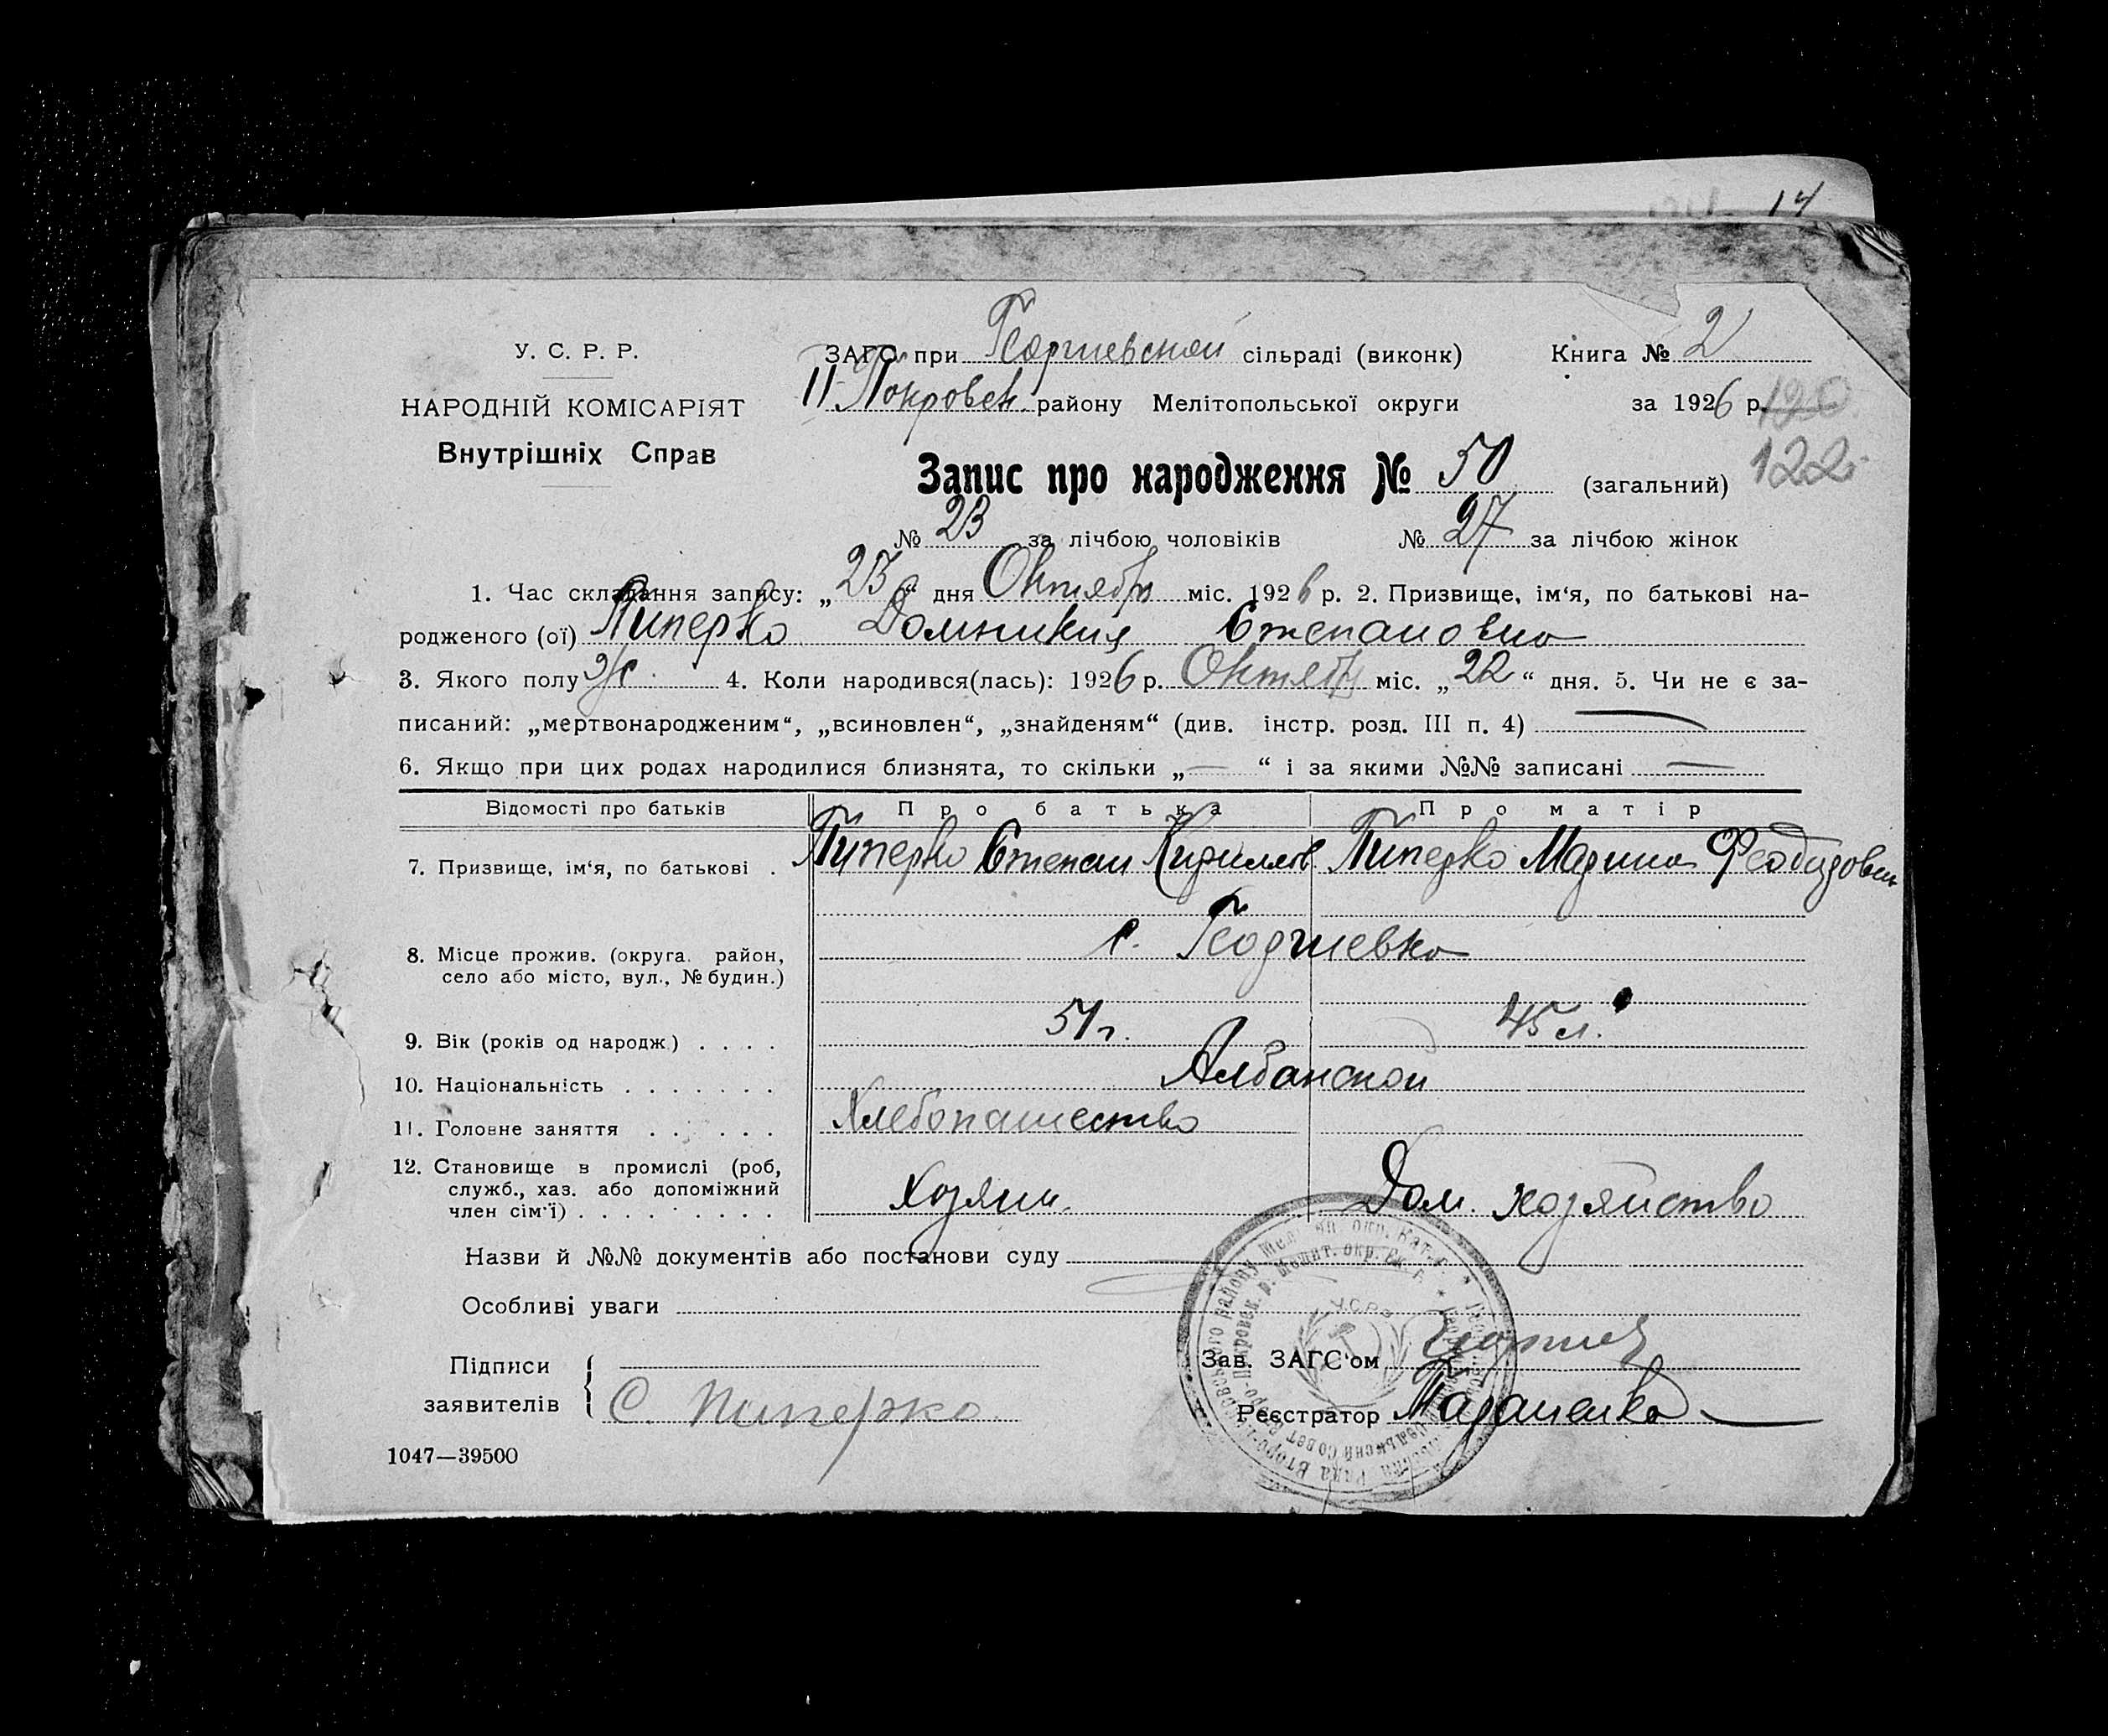 14
У. С. Р. Р.
НАРОДНІЙ КОМІСАРІЯТ
Внутрішніх Справ
ЗАГС при Георгиевской сільраді (виконк)
Книга № 2
II-Покровск. району Мелітопольської округи
за 1926 р.
120
122
Запис про народження № 50 (загальний)
№ 23 за лічбою чоловіків № 27 за лічбою жінок
1. Час складання запису: „23“ дня Октября міс. 1926 р. 2. Призвище, ім‘я, по батькові на-
родженого (ої) Пиперко Домникия Степановна
3. Якого полу ж. 4. Коли народився(лась): 1926 р. Октября міс. „22“ дня. 5. Чи не є за-
писаний: „мертвонародженим“, „всиновлен“, „знайденям“ (див. інстр. розд. III п. 4) —
6. Якщо при цих родах народилися близнята, то скільки „—“ і за якими №№ записані —
Відомості про батьків Про батька Про матір
7. Призвище, ім‘я, по батькові . Пиперко Степан Кирилов Пиперко Марина
с. Георгиевка
8. Місце прожив. (округа. район,
село або місто, вул., № будин.)
9. Вік (років од народж.) . . . . 51 г. 45 л.
10. Національність . . . . . . . Албанской
11. Головне заняття . . . . . . Хлебопашество
12. Становище в промислі (роб,
служб., хаз. або допоміжний
член сім‘ї) . . . . . . . . . Хозяин. Дом. хозяйство
Назви й №№ документів або постанови суду
Особливі уваги
У.С.Р.Р.
Підписи
заявителів { С. Пиперко.
Зав. ЗАГС‘ом
Реєстратор
1047—39500